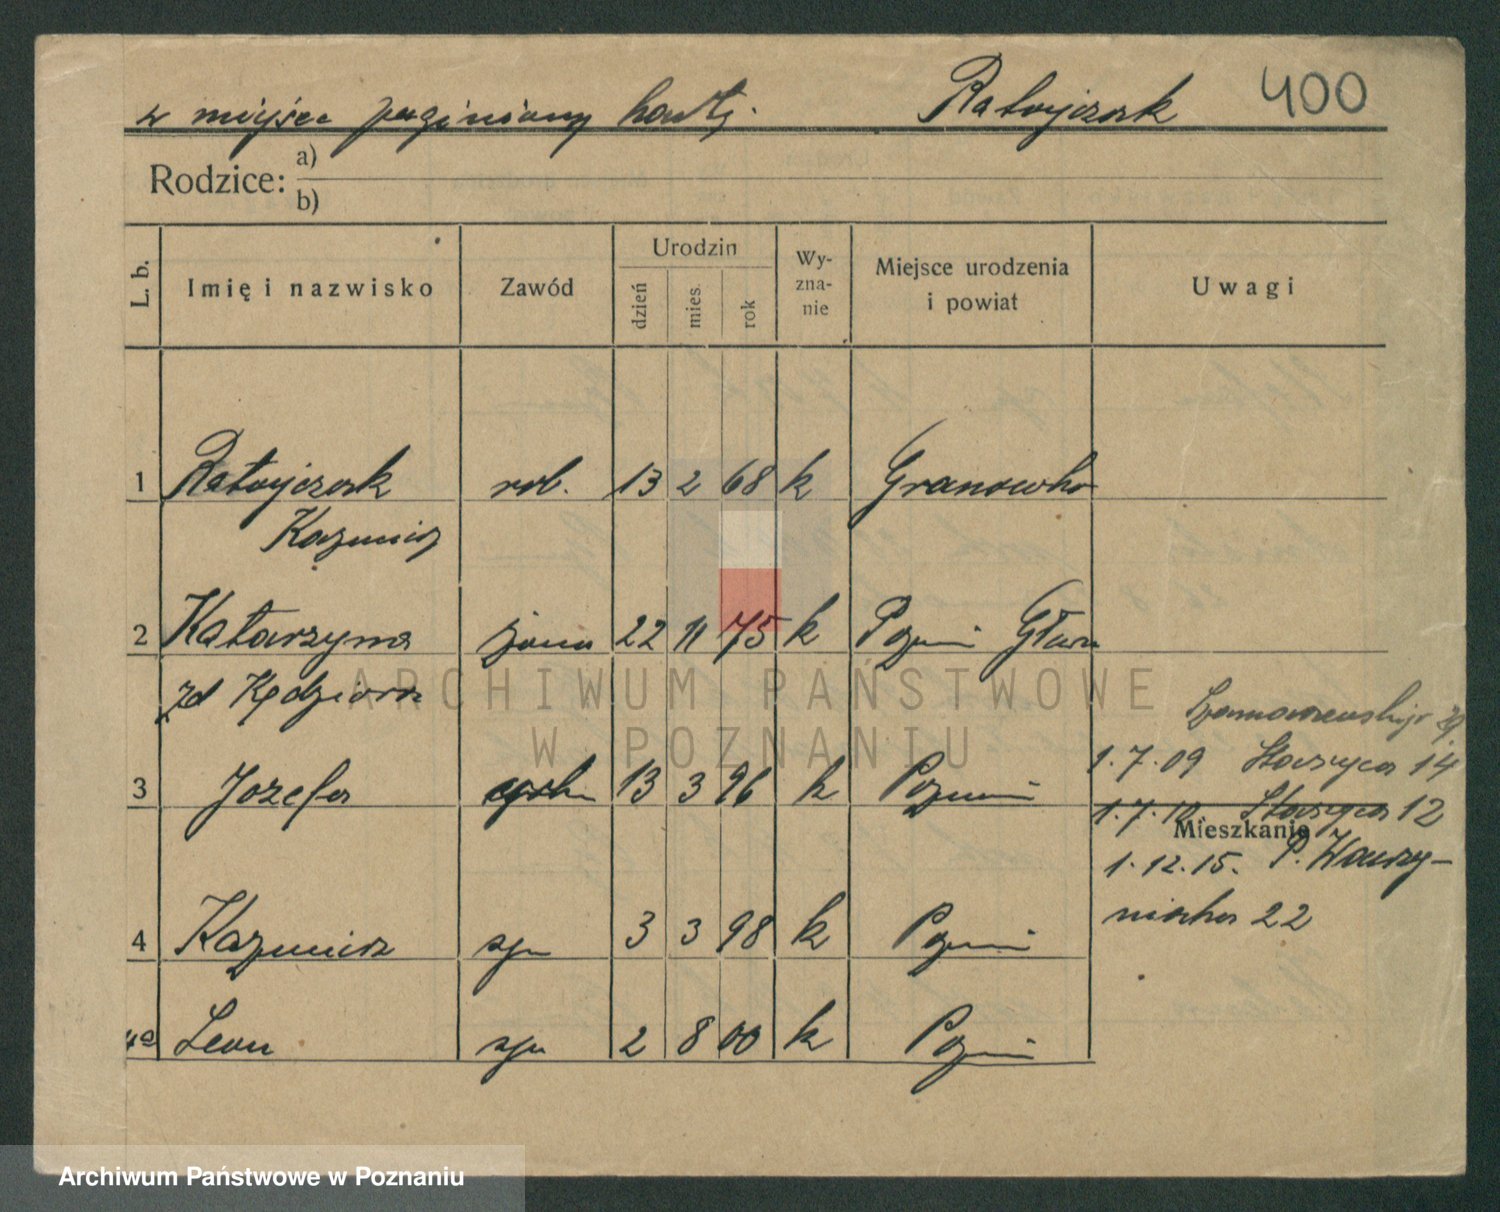 w miejsce zaginionej karty. Ratajczak 400
Rodzice: a)
b)
L. b. Imię i nazwisko Zawód Urodzin dzień mies. rok Wyznanie Miejsce urodzenia i powiat Uwagi
1 Ratajczak rob. 13 2 68 k Granowko
Kazimierz
2 Katarzyna żona 22 11 75 k Pozn
zd Kędziora
3 Józefa 13 3 96 k Pozn
4 Kazimierz syn 3 3 98 k Pozn
4a Leon syn 2 8 00 k Pozn
1.7.09 Staszyca 14
1.7.12 Staszyca 12
Mieszkanie
1.12.15. P. Wawrzy-
niaka 22
ARCHIWUM PAŃSTWOWE
W POZNANIU
Archiwum Państwowe w Poznaniu